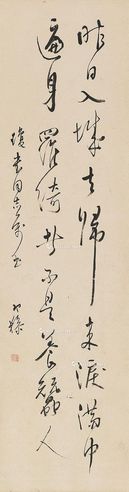 昨日入城去歸来淚満巾
遍身羅绮者不是養蠶人